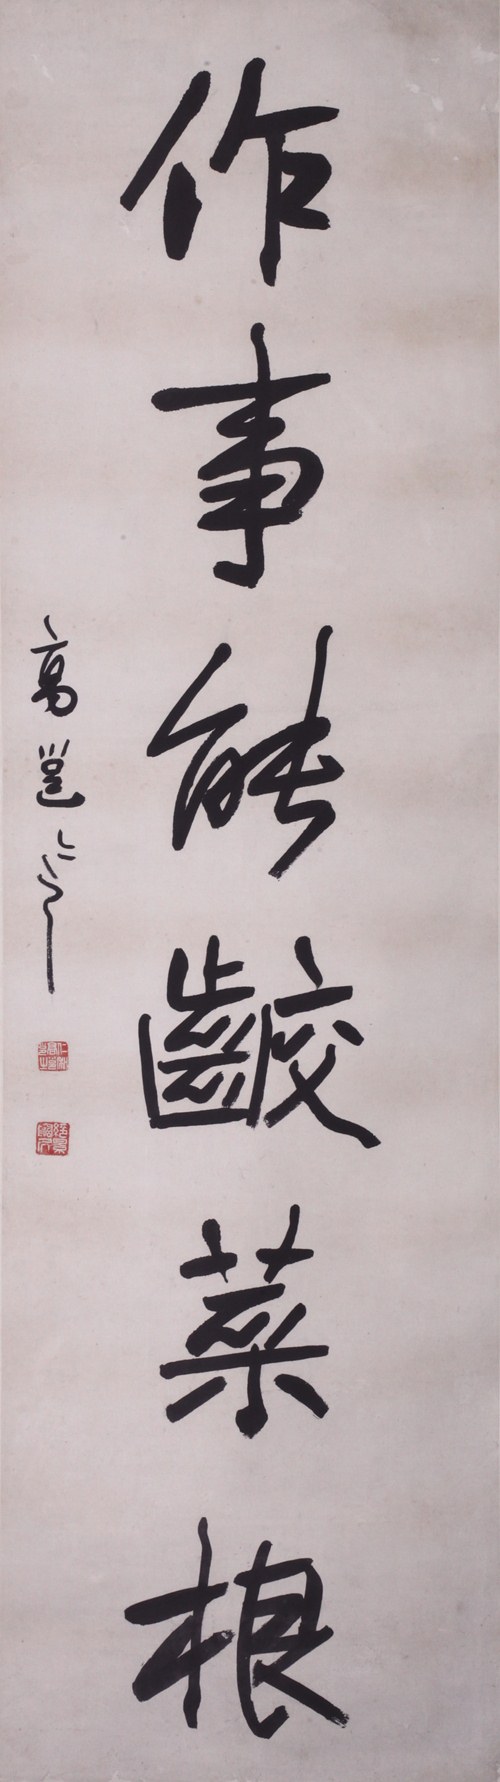 作事能齩菜根
高邕